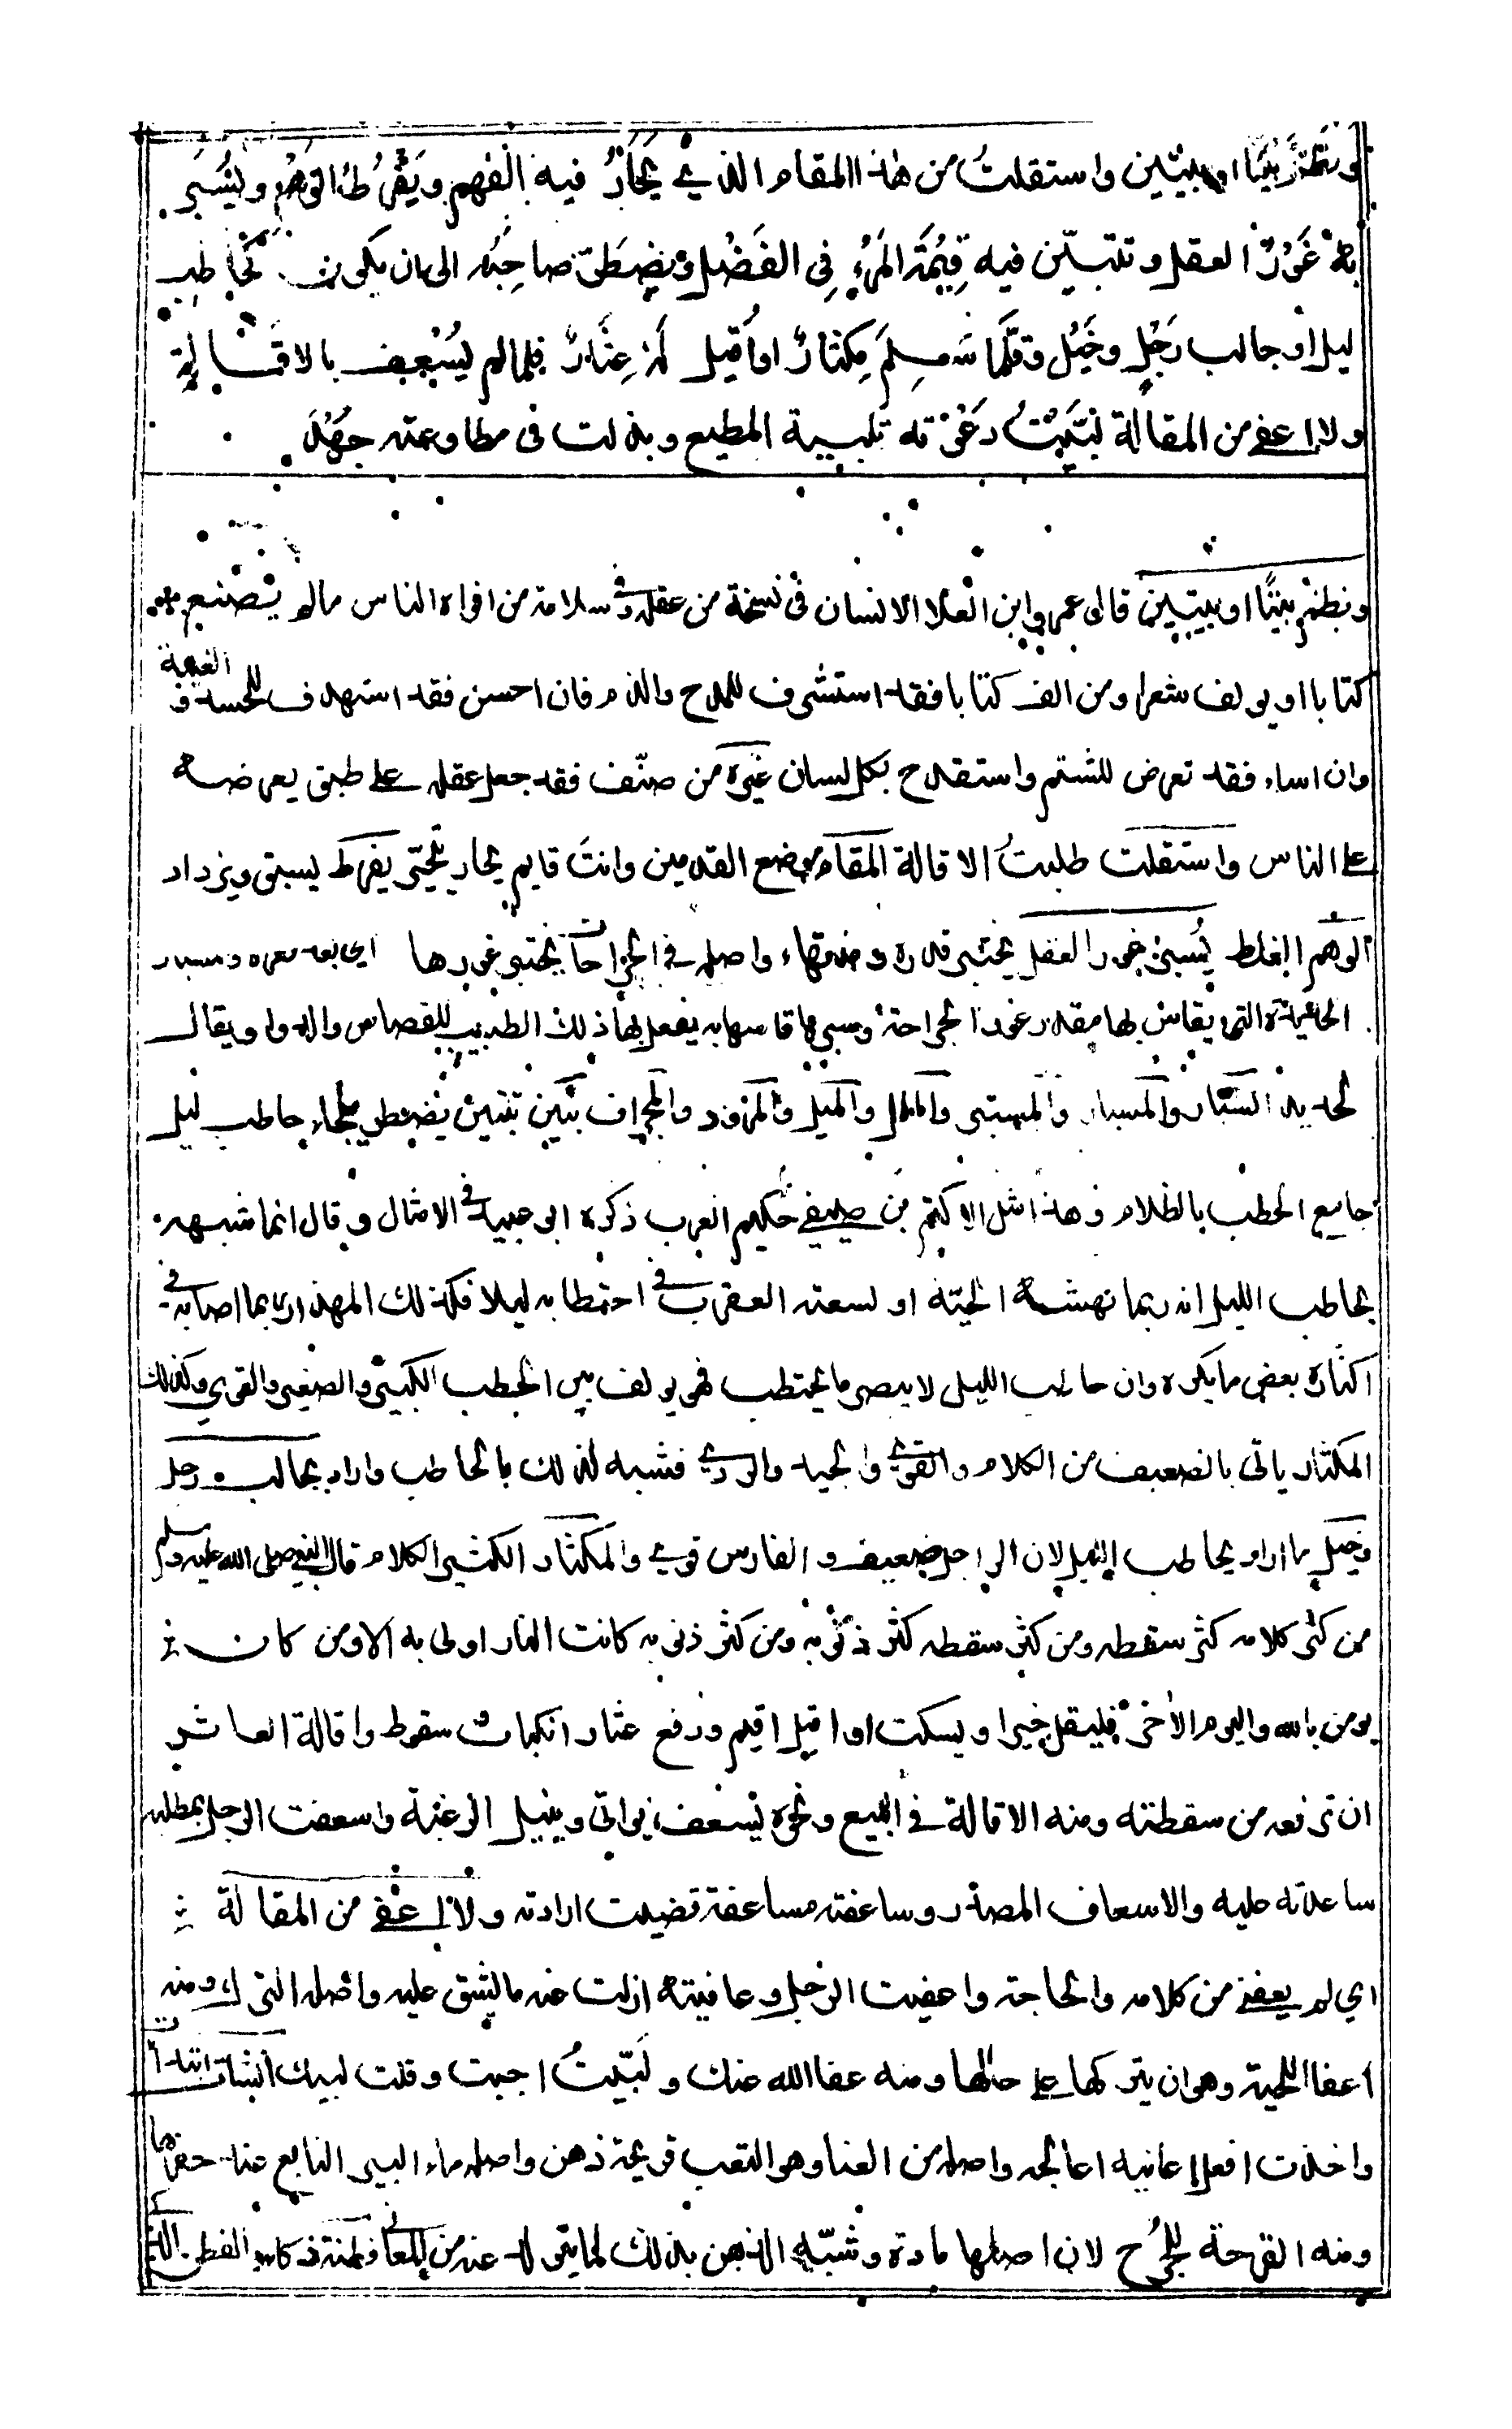 ونظم بيتا او بيتين واستقلت من هذا المقام الذي يحار فيه الفهم ويفرط الوهم ويسبر
به غور العقل وتتبين فيه قيمة المرء في الفضل ويضطر صاحبه الى ان يكون كحاطب
ليل او جالب رجل وخيل وقلما سلم مكثار او اقيل له عثار فلما لم يسعف بالاقالة
ولا اعفى من المقالة لبيت دعوته تلبية المطيع وبذلت فى مطاوعته جهد
ونظم بيتا او بيتين قال عمرو ابن العلا الانسان فى فسحة من عقله وفي سلامة من افواه الناس مالم يصنع
كتابا او يولف شعرا ومن الف كتابا فقد استشرف للمدح والذم فان احسن فقد استهدف للحسد و الغيبة
وان اساء فقد تعرض للشتم واستقدح بكل لسان غيره من صنف فقد جعل عقله على طبق يعرضه
على الناس واستقلت طلبت الاقالة المقام موضع القدمين وانت قايم يحار يتحير يفرط يسبق ويزداد
الوهم الغلط يسبر غور العقل يختبر قدره واصله في الجراحات يختبر غورها اي بعد قعره ومسبار
التي يقاس بها مقدار غور الجراحة وسبرها قاسها به يفعل بها ذلك الطبيب للقصاص والدوا ويقال
لحديدة السبار والمسبار والمسبر والململ والميل والمرود والمجراف تبين تتبين يضطر يلجاء حاطب ليل
جامع الحطب بالظلام وهذا مثل الاكثم بن صيفي حكيم العرب ذكره ابو عبيد في الامثال وقال انما شبهه
بحاطب الليل انه ربما نهشته الحية او لسعته العقرب في احتطابه ليلا فكذلك المهذار ربما اصابه في
اكثاره بعض مايكره وان حاطب الليل لا يبصر ما يحتطب فهو يولف بين الحطب الكبير والصغير والقوي وكذلك
المكثار ياتى بالضعيف من الكلام والقوي والجيد والردي فشبه لذلك بالحاطب واراد بجالب رجل
وخيل ما اراد بحاطب الليل لان الراجل ضعيف والفارس قوي والمكثار الكثير الكلام قال النبي صلى الله عليه وسلم
من كثر كلامه كثر سقطه ومن كثر سقطه كثر ذنوبه ومن كثر ذنوبه كانت النار اولى به الا ومن كان
يومن بالله واليوم الاخر فليقل خيرا او ليسكت او اقيل اقيم ورفع عثار انكباب سقوط واقالة العاثر
ان ترفعه من سقطته ومنه الاقالة في البيع ونحوه يسعف يواتى وينيل الرغبة واسعفت الرجل بمطلبه
ساعدته عليه والاسعاف المصدر وساعفته مساعفة قضيت ارادته ولا اعفى من المقالة
اي لم يعفني من كلامه والحاجة واعفيت الرجل وعافيته ازلت عنه ما يشق عليه واصله الترك ومنه
اعفا اللحية وهو ان يتركها على حالها ومنه عفا الله عنك ولبيت اجبت وقلت لبيك انشات ابتدات
واخذت افعل اعانيه اعالجه واصله من العنا وهو التعب قريحة ذهن واصله ماء البير النابع عند حفرها
ومنه القرحة للجرح لان اصلها مادة وشبه الذهن بذلك لما يتولد عنه من المعاني وفطنة ذكاء